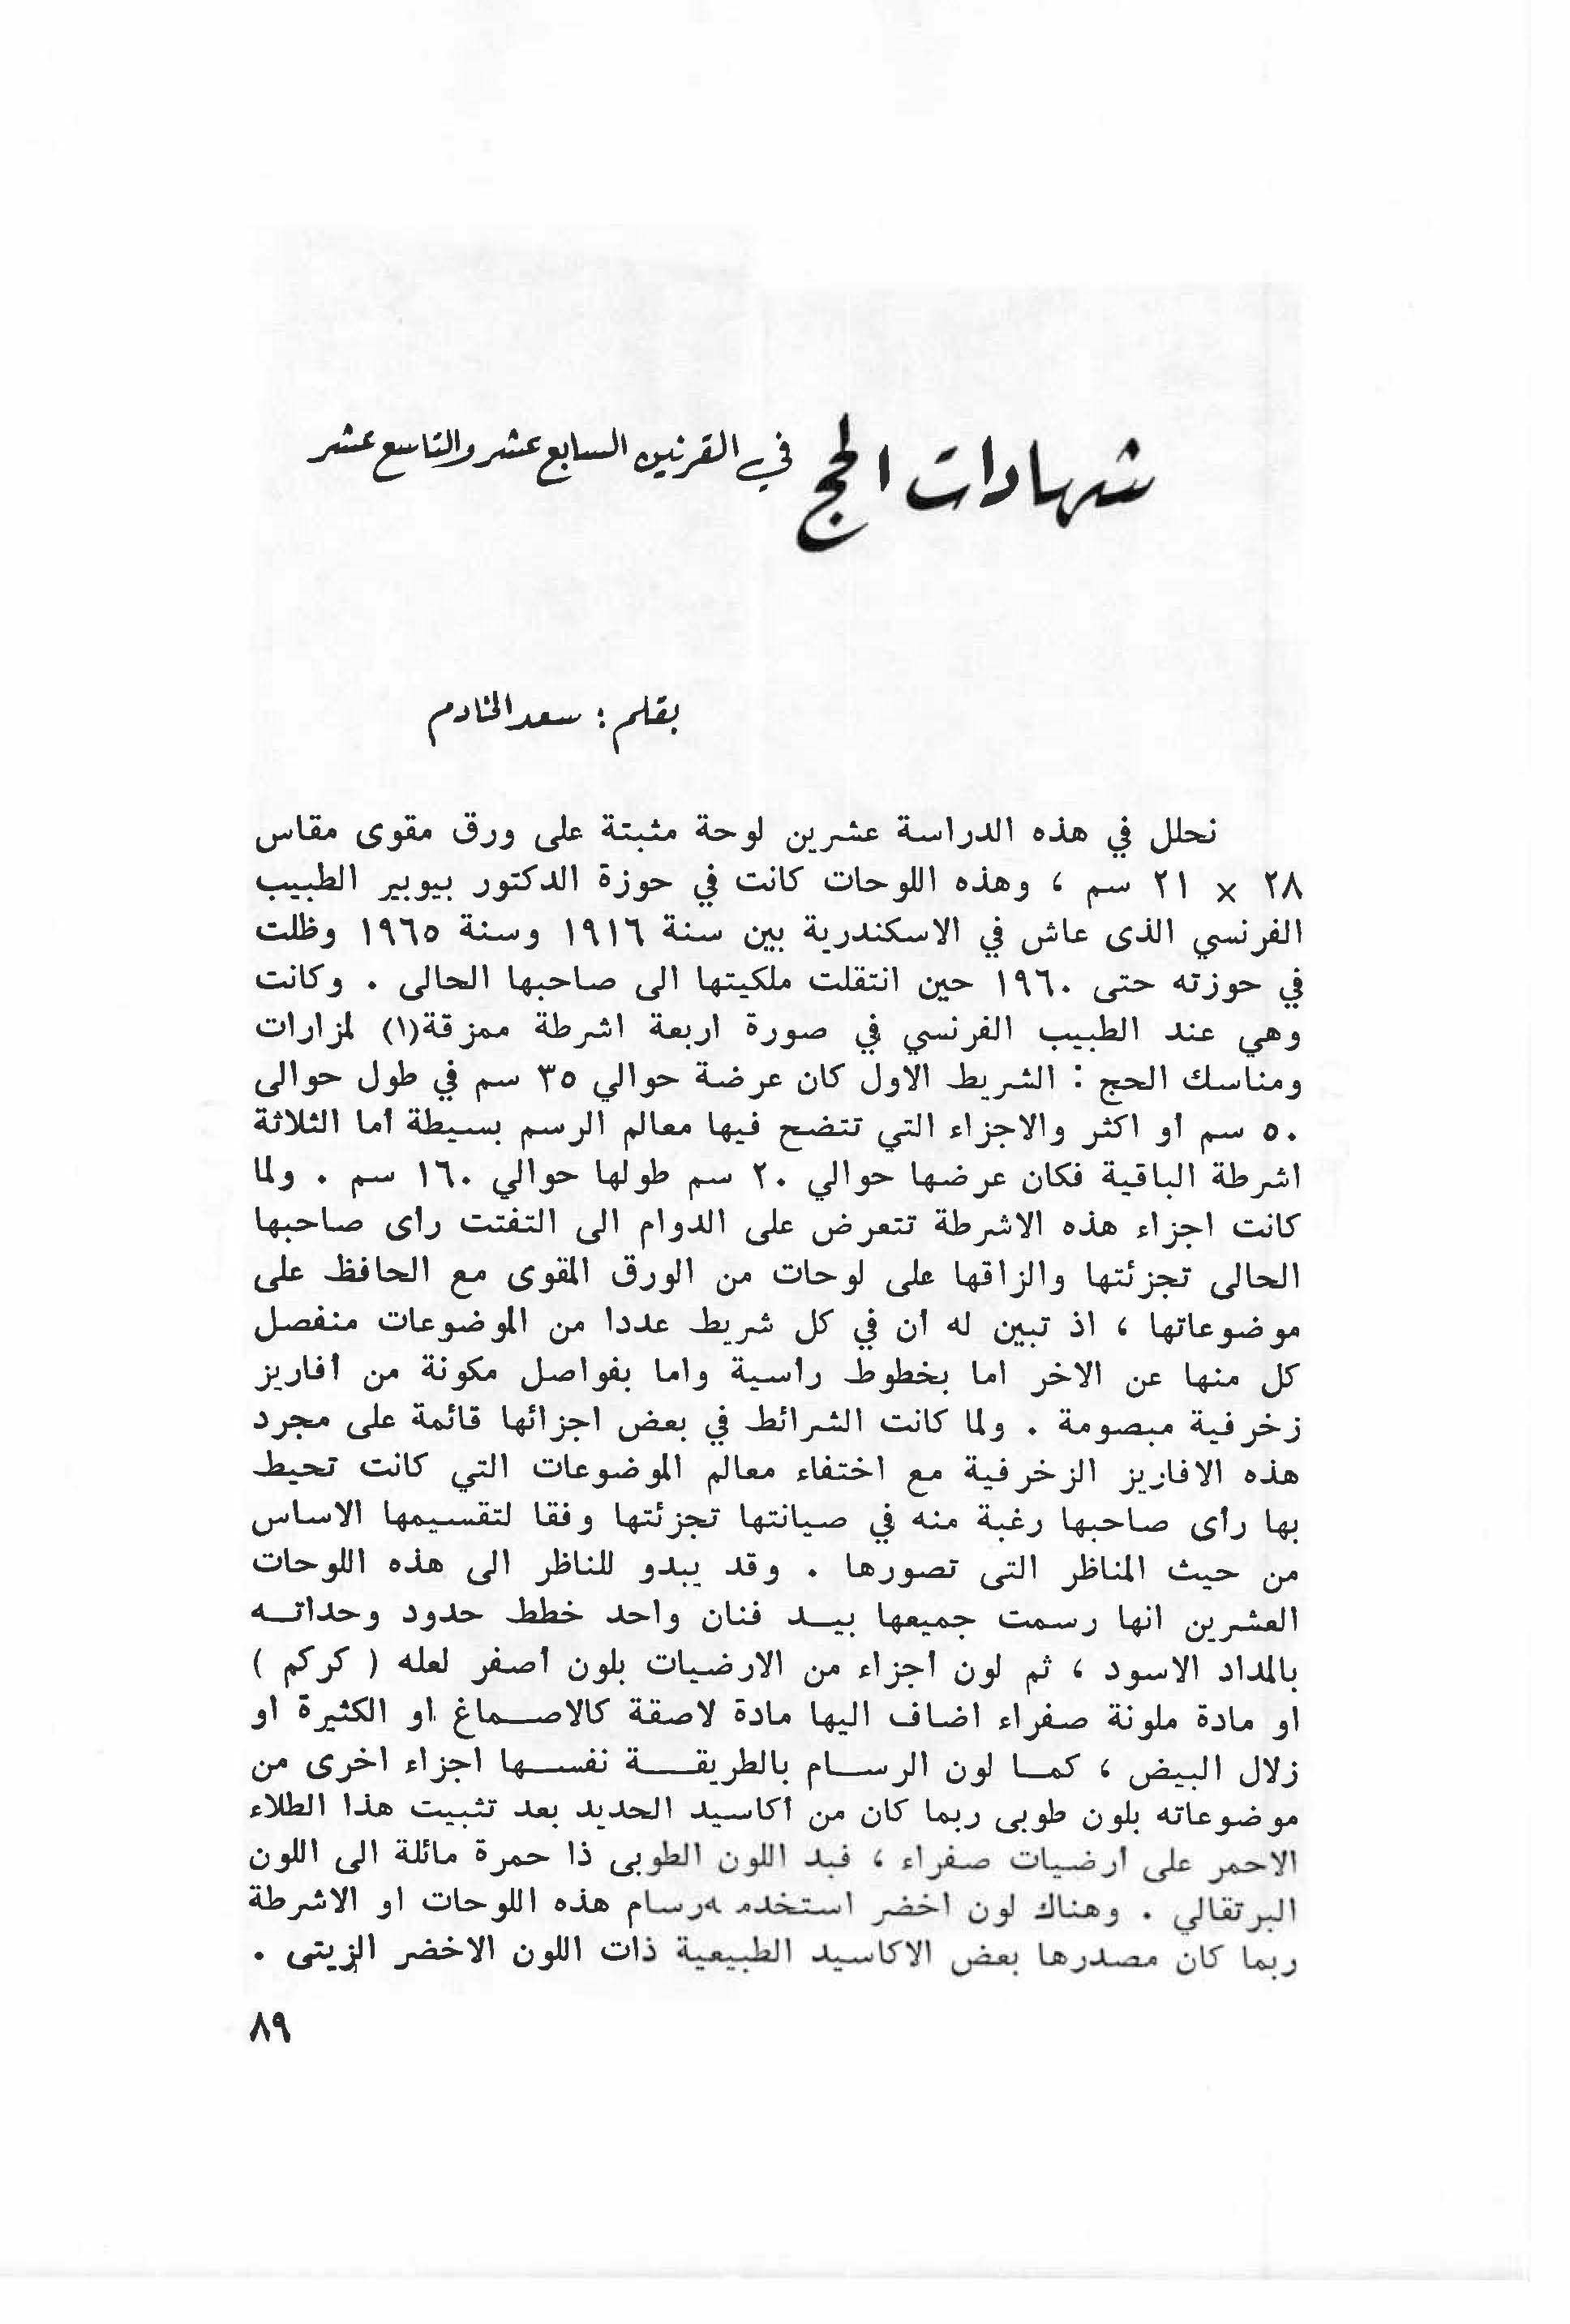 شهادات الحج في القرنين السابع عشر والتاسع عشر
بقلم : سعد الخادم
نحلل في هذه الدراسة عشرين لوحة مثبتة على ورق مقوى مقاس
٢٨ × ٢١ سم ، وهذه اللوحات كانت في حوزة الدكتور بيوبير الطبيب
الفرنسي الذى عاش في الاسكندرية بين سنة ١٩١٦ وسنة ١٩٦٥ وظلت
في حوزته حتى ١٩٦٠ حين انتقلت ملكيتها الى صاحبها الحالى . وكانت
وهي عند الطبيب الفرنسي في صورة اربعة اشرطة ممزقة(١) لمزارات
ومناسك الحج : الشريط الاول كان عرضة حوالي ٣٥ سم في طول حوالى
٥٠ سم أو اكثر والاجزاء التي تتضح فيها معالم الرسم بسيطة أما الثلاثة
اشرطة الباقية فكان عرضها حوالي ٢٠ سم طولها حوالي ١٦٠ سم . ولما
كانت اجزاء هذه الاشرطة تتعرض على الدوام الى التفتت رأى صاحبها
الحالى تجزئتها والزاقها على لوحات من الورق المقوى مع الحافظ على
موضوعاتها ، اذ تبين له أن في كل شريط عددا من الموضوعات منفصل
كل منها عن الاخر اما بخطوط رأسية واما بفواصل مكونة من أفاريز
زخرفية مبصومة . ولما كانت الشرائط في بعض اجزائها قائمة على مجرد
هذه الافاريز الزخرفية مع اختفاء معالم الموضوعات التي كانت تحيط
بها رأى صاحبها رغبة منه في صيانتها تجزئتها وفقا لتقسيمها الاساس
من حيث المناظر التى تصورها . وقد يبدو للناظر الى هذه اللوحات
العشرين انها رسمت جميعها بيــد فنان واحد خطط حدود وحداتــه
بالمداد الاسود ، ثم لون أجزاء من الارضيات بلون أصفر لعله ( كركم )
او مادة ملونة صفراء اضاف اليها مادة لاصقة كالاصــماغ او الكثيرة أو
زلال البيض ، كمــا لون الرســام بالطريقــــة نفســـها اجزاء اخرى من
موضوعاته بلون طوبى ربما كان من أكاسيد الحديد بعد تثبيت هذا الطلاء
الاحمر على أرضيات صفراء ، فبد اللون الطوبى ذا حمرة مائلة الى اللون
البرتقالي . وهناك لون اخضر استخدم ەرسام هذه اللوحات او الاشرطة
ربما كان مصدرها بعض الاكاسيد الطبيعية ذات اللون الاخضر الزيتى .
٨٩